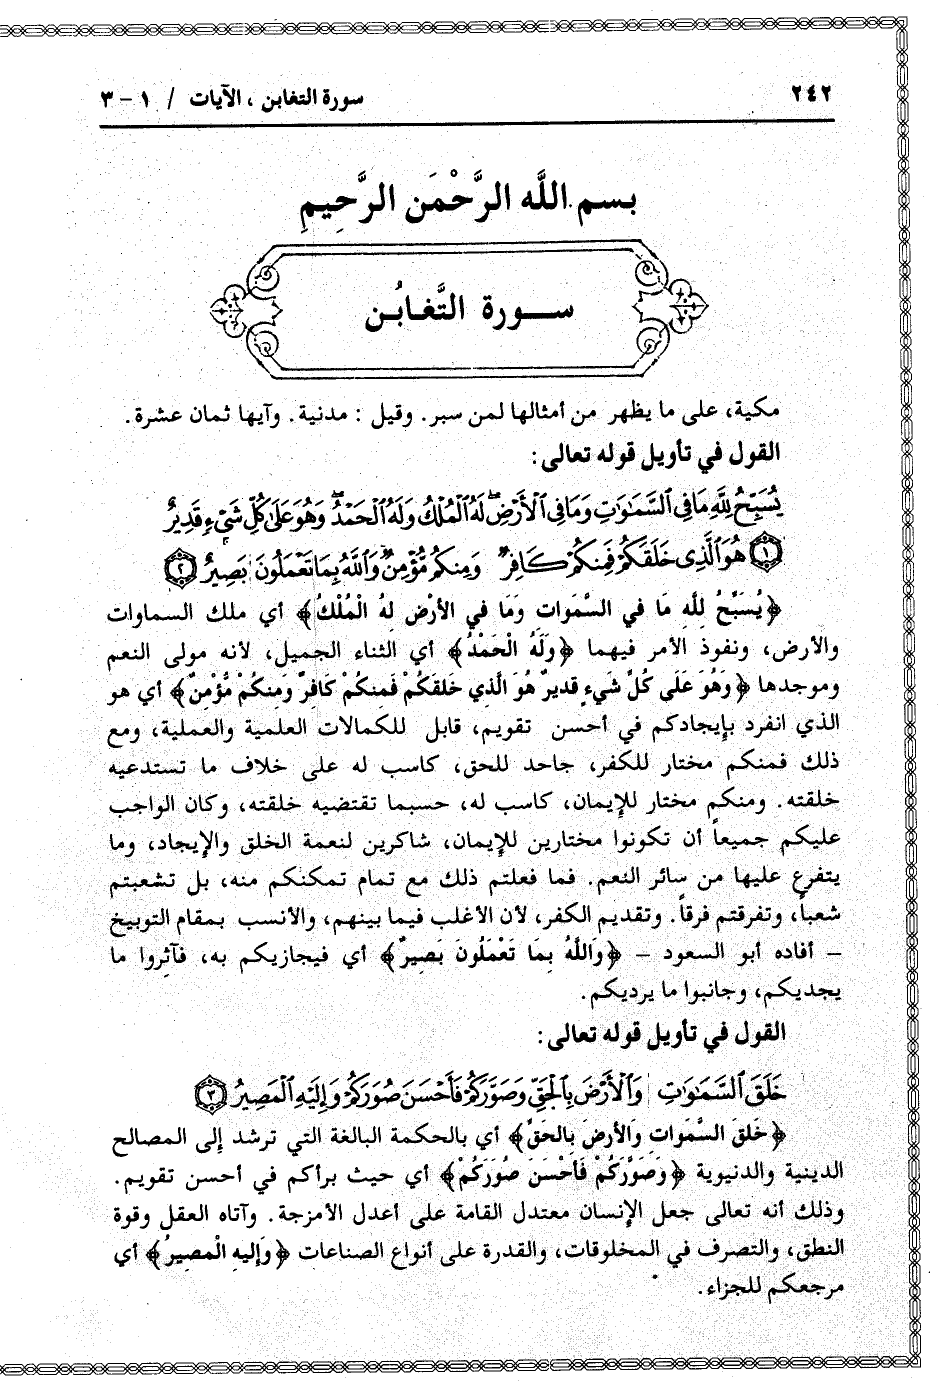 ٢٤٢ سورة التغابن ، الآيات / ١ - ٣
بسم اللَّه الرَّحْمَن الرَّحِيمِ
سـورة التَّغـابُـن
مكية، على ما يظهر من أمثالها لمن سبر. وقيل : مدنية. وآيها ثمان عشرة.
القول في تأويل قوله تعالى:
يُسَبِّحُ لِلَّهِ مَا فِي السَّمَاوَاتِ وَمَا فِي الْأَرْضِ لَهُ الْمُلْكُ وَلَهُ الْحَمْدُ وَهُوَ عَلَىٰ كُلِّ شَيْءٍ قَدِيرٌ
١ هُوَ الَّذِي خَلَقَكُمْ فَمِنكُمْ كَافِرٌ وَمِنكُم مُّؤْمِنٌ وَاللَّهُ بِمَا تَعْمَلُونَ بَصِيرٌ ٢
﴿يُسَبِّحُ لِلَّهِ مَا فِي السَّمَوات وَمَا فِي الأرْضِ لهُ الْمُلْكُ﴾ أي ملك السماوات
والأرض، ونفوذ الأمر فيهما ﴿وَلَهُ الْحَمْدُ﴾ أي الثناء الجميل، لأنه مولى النعم
وموجدها ﴿وَهُوَ عَلَى كُلِّ شَيءٍ قديرٌ هُوَ الَّذِي خَلقكُمْ فَمِنكُمْ كَافِرٌ وَمِنكُمْ مُّؤْمِنٌ﴾ أي هو
الذي انفرد بإيجادكم في أحسن تقويم، قابل للكمالات العلمية والعملية، ومع
ذلك فمنكم مختار للكفر، جاحد للحق، كاسب له على خلاف ما تستدعيه
خلقته. ومنكم مختار للإيمان، كاسب له، حسبما تقتضيه خلقته، وكان الواجب
عليكم جميعاً أن تكونوا مختارين للإيمان، شاكرين لنعمة الخلق والإيجاد، وما
يتفرع عليها من سائر النعم. فما فعلتم ذلك مع تمام تمكنكم منه، بل تشعبتم
شعباً، وتفرقتم فرقاً. وتقديم الكفر، لأن الأغلب فيما بينهم، والأنسب بمقام التوبيخ
– أفاده أبو السعود – ﴿وَاللَّهُ بِمَا تَعْمَلُونَ بَصِيرٌ﴾ أي فيجازيكم به، فآثروا ما
يجديكم، وجانبوا ما يرديكم.
القول في تأويل قوله تعالى:
خَلَقَ السَّمَاوَاتِ وَالْأَرْضَ بِالْحَقِّ وَصَوَّرَكُمْ فَأَحْسَنَ صُوَرَكُمْ وَإِلَيْهِ الْمَصِيرُ ٣
﴿خَلقَ السَّموات والأرضَ بالحَقِّ﴾ أي بالحكمة البالغة التي ترشد إلى المصالح
الدينية والدنيوية ﴿وَصَوَّرَكُمْ فَأحْسَنَ صُوَرَكُمْ﴾ أي حيث برأكم في أحسن تقويم.
وذلك أنه تعالى جعل الإنسان معتدل القامة على أعدل الأمزجة. وآتاه العقل وقوة
النطق، والتصرف في المخلوقات، والقدرة على أنواع الصناعات ﴿وَإليهِ الْمَصِيرُ﴾ أي
مرجعكم للجزاء.